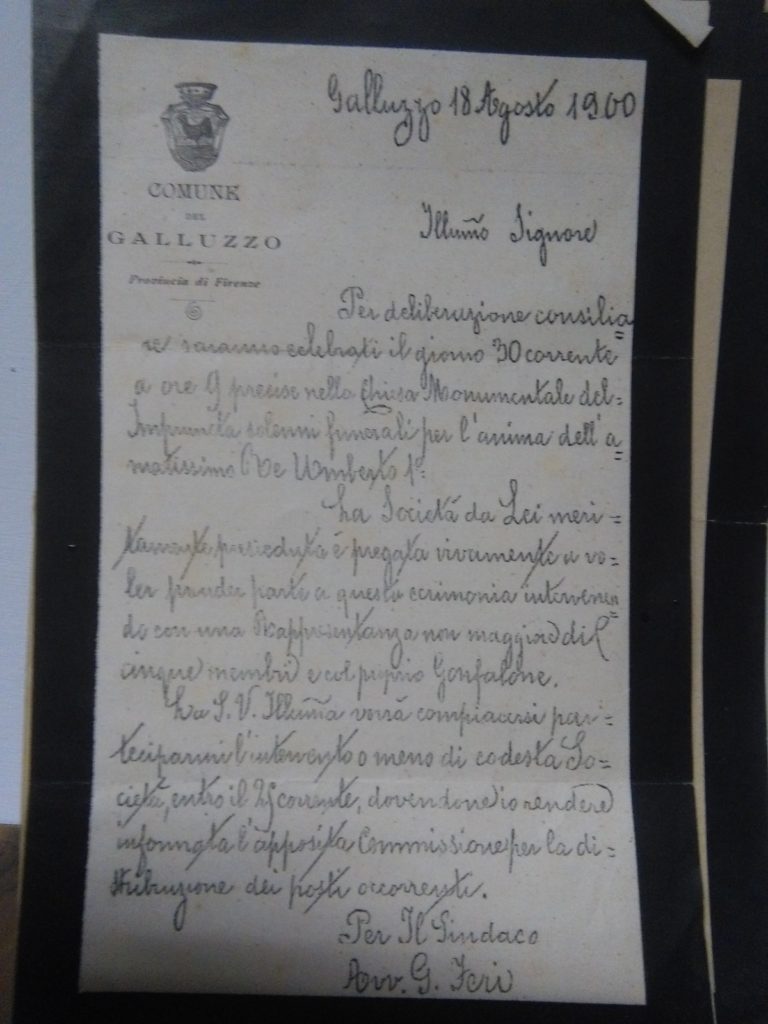 Galluzzo 18 Agosto 1900
COMUNE
DEL
GALLUZZO
Provincia di Firenze
Illum̃o Signore
Per deliberazione consilia=
re saranno celebrati il giorno 30 corrente
a ore 9 precise nella Chiesa Monumentale del=
Impruneta solenni funerali per l'anima dell'a=
matissimo Re Umberto 1º.
La Società da Lei meri=
tamente presieduta è pregata vivamente a vo=
ler prender parte a questa cerimonia intervenen=
do con una Rappresentanza non maggiore di
cinque membri e col proprio Gonfalone.
La S. V. Illum̃a vorrà compiacersi par=
teciparmi l'intervento o meno di codesta So=
cietà, entro il 25 corrente, dovendone io rendere
informata l'apposita Commissione per la di=
stribuzione dei posti occorrenti.
Per Il Sindaco
Avv. G.